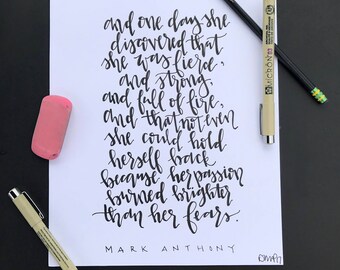 and one day she
discovered that
she was fierce,
and strong,
and full of fire,
and that not even
she could hold
herself back
because her passion
burned brighter
than her fears.
MARK ANTHONY
MICRON